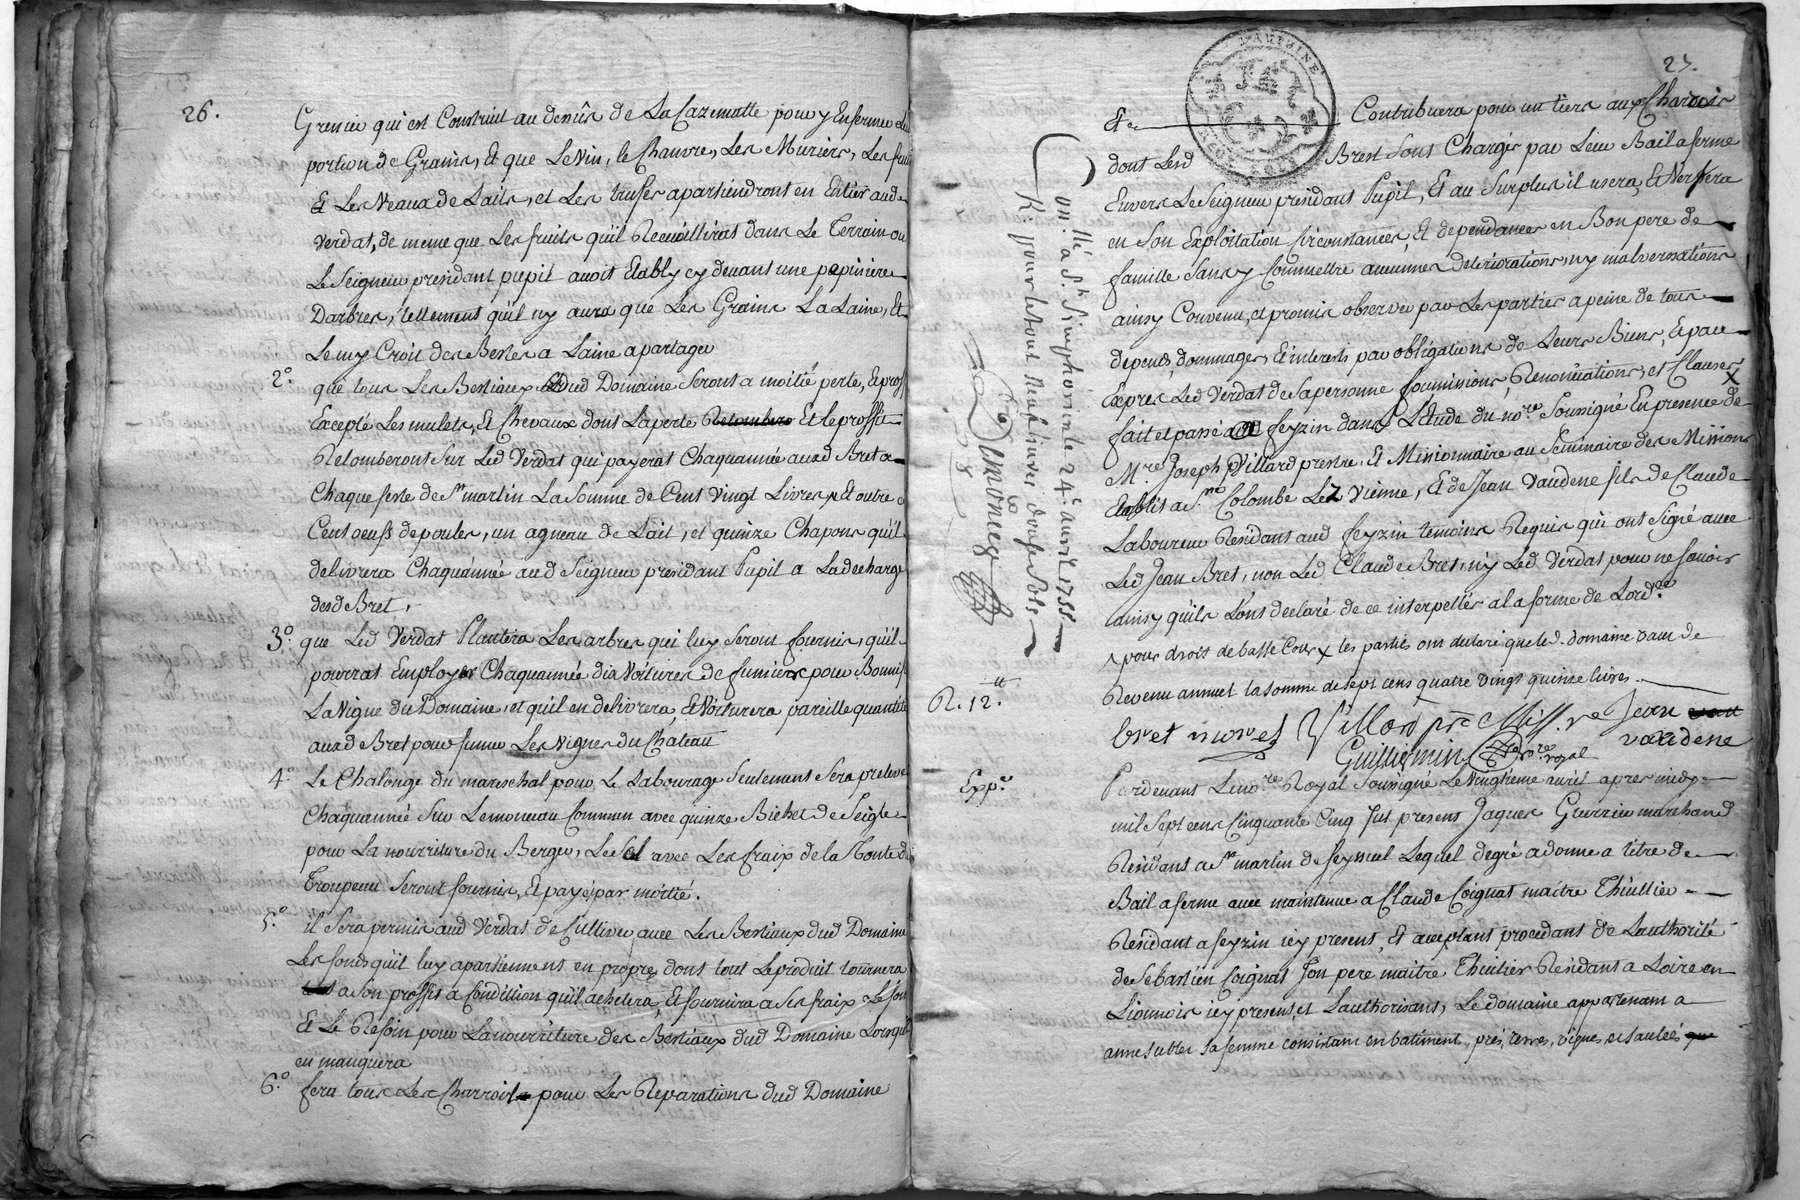 26.
Grenier qui est Construit au dessus de La Cazematte pour y Enfermer
portion de Grains, Et que Le Vin, le Chanvre, Les Muriers, Les
Et Les Veaux de Laits, et Les truffes apartiendront en Entier aud
Verdat, de meme que Les fruits qu'il Recuëillirat dans Le Terrain ou
Le Seigneur presidant pupil avoit Etably cy devant une pepiniere
Darbres, tellement quil ny aura que Les Grains La Laine, Et
Le Croit des Bestes a Laine a partager
2° que tous Les Bestiaux dud Domaine Seront a moitié perte, Et
Excepté Les mulets, Et Chevaux dont La perte Retombera Et le proffit
Retomberont Sur Led Verdat qui payerat Chaquannée auxd Bret a
Chaque feste de St martin La Somme de Cent Vingt Livres, Et outre
Cent oeufs de poules, un agneau de Lait, et quinze Chapons qu'il
delivrera Chaquannée aud Seigneur presidant Pupil a La decharge
desd Bret,
3° que Led Verdat Plantera Les arbres qui luy Seront fournis, qu'il
pourrat Employer Chaquannée dix Voitures de fumiers pour
La Vigne du Domaine, et qu'il en delivrera, Et Voiturera pareille quantité
auxd Bret pour fumer Les Vignes du Château
4° Le Chalonge du mareschal pour Le Labourage Seulement Sera preleve
Chaquannée Sur Le monceau Commun avec quinze Bichet de Seigle
pour La nourriture du Berger, Le Sel avec Les fraix de la Monte du
Troupeau Seront fournis, Et payé par moitié.
5° il Sera permis aud Verdat de Cultiver avec Les Bestiaux dud Domaine
Les fonds qu'il luy apartiennent en propre dont tout Le produit tournera
a Son proffit a Condition qu'il achetera, Et fournira a Ses fraix Le foin
Et Le Refoin pour La nourriture des Bestiaux dud Domaine Lorsqu'il
en manquera
6° fera tous Les Charroit pour Les Reparations dud Domaine
27.
DAUPHINE
Et Contribuera pour un tiers aux Charois
dont Lesd Bret Sont Chargés par Leur Bail a ferme
Envers Le Seigneur presidant Pupil, Et au Surplus il usera, Et Versera
en Son Exploitation Circonstances, Et dependances en Bon pere de
famille Sans y Commettre aucunes deteriorations, ny malversations
ainsy Convenu, et promis observer par Les parties a peine de tous
depends, dommages, Et interests par obligations de Leurs Biens, Et par
Expres Led Verdat de Sa personne Soumissions, Renonciations, et Clauses
fait et passé a feyzin dans L'Etude du nore Soussigné En presence de
Mre Joseph Villard prestre, Et Missionnaire au Seminaire des Missions
Etablis a Ste Colombe Lez Vienne, Et de Jean Vaudene fils de Claude
Laboureur Residant aud feyzin temoins Requis qui ont Signé avec
Led Jean Bret, non Led Claude Bret, ny Led Verdat pour ne Scavoir
ainsy qu'ils L'ont declaré de ce interpellés a la forme de Lordce
pour droit de basse Cour x les parties ont declaré que led. domaine vaut de
Revenu annuel la somme de sept cens quatre vingt quinze livres
R. 12.tt
bret Villard pre Miss.re Jean
vaudene
Guillermin nore royal
Onlle a St Simphorien le 24e avril 1755
R. neuf livres douse Sols
Expé
Pardevant Le nore Royal Soussigné Le Vingtieme avril apres midy
mil Sept cens Cinquante Cinq fut present Jaques Guerrier marchand
Residant a St martin de feyssuel Lequel de gré a donné a titre de
Bail a ferme avec maintenue a Claude Coignat maitre Thuillier
Residant a feyzin icy present, Et acceptant procedant de L'authorité
de Sebastien Coignat Son pere maitre Thuilier Residant a Loire en
Lionnois icy present et L'authorisant, Le domaine appartenant a
anne sublet sa femme consistant en batiment, prés, terres, vignes et saulées